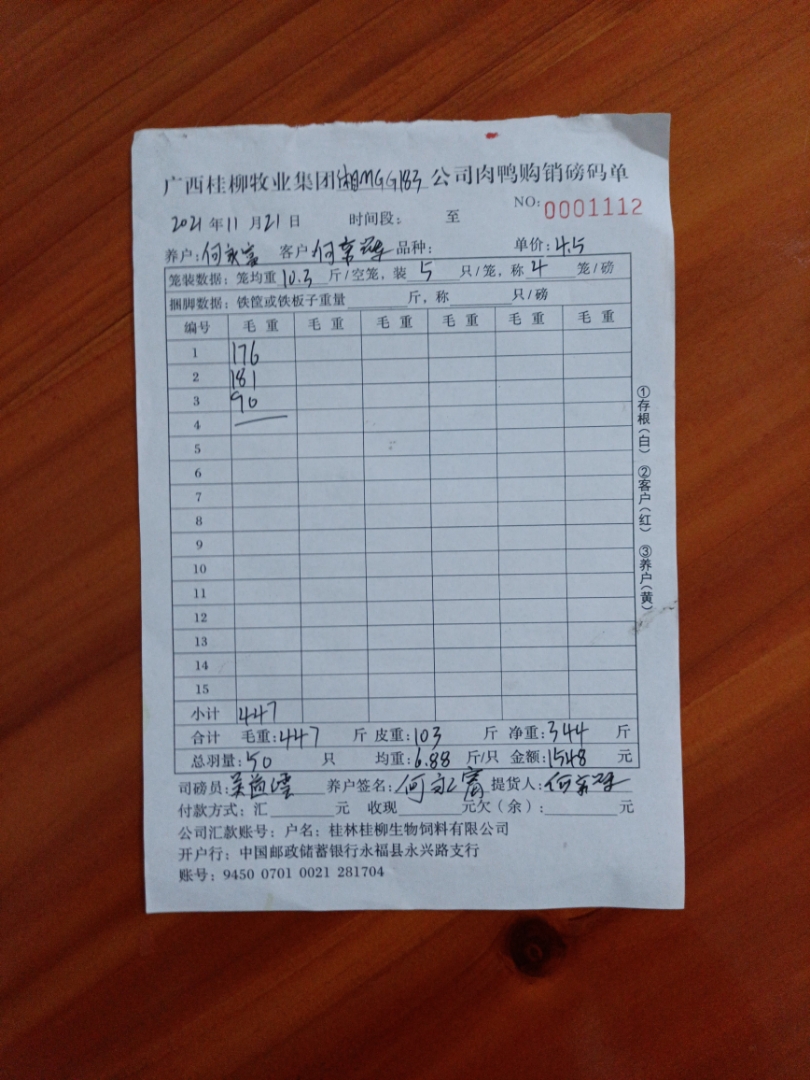 广西桂柳牧业集团湘MGG183公司肉鸭购销磅码单
NO: 0001112
2021年11月21日 时间段: 至
养户: 何永富 客户 何常 品种: 单价: 4.5
笼装数据: 笼均重 10.3 斤/空笼, 装 5 只/笼, 称 4 笼/磅
捆脚数据: 铁筐或铁板子重量 斤, 称 只/磅
编号 毛重 毛重 毛重 毛重 毛重 毛重
1 176
2 181
3 90
4
5
6
7
8
9
10
11
12
13
14
15
小计 447
合计 毛重: 447 斤 皮重: 103 斤 净重: 344 斤
总羽量: 50 只 均重: 6.88 斤/只 金额: 1548 元
司磅员: 养户签名: 何永富 提货人: 何常
付款方式: 汇 元 收现 元欠(余): 元
公司汇款账号: 户名: 桂林桂柳生物饲料有限公司
开户行: 中国邮政储蓄银行永福县永兴路支行
账号: 9450 0701 0021 281704
①存根(白) ②客户(红) ③养户(黄)